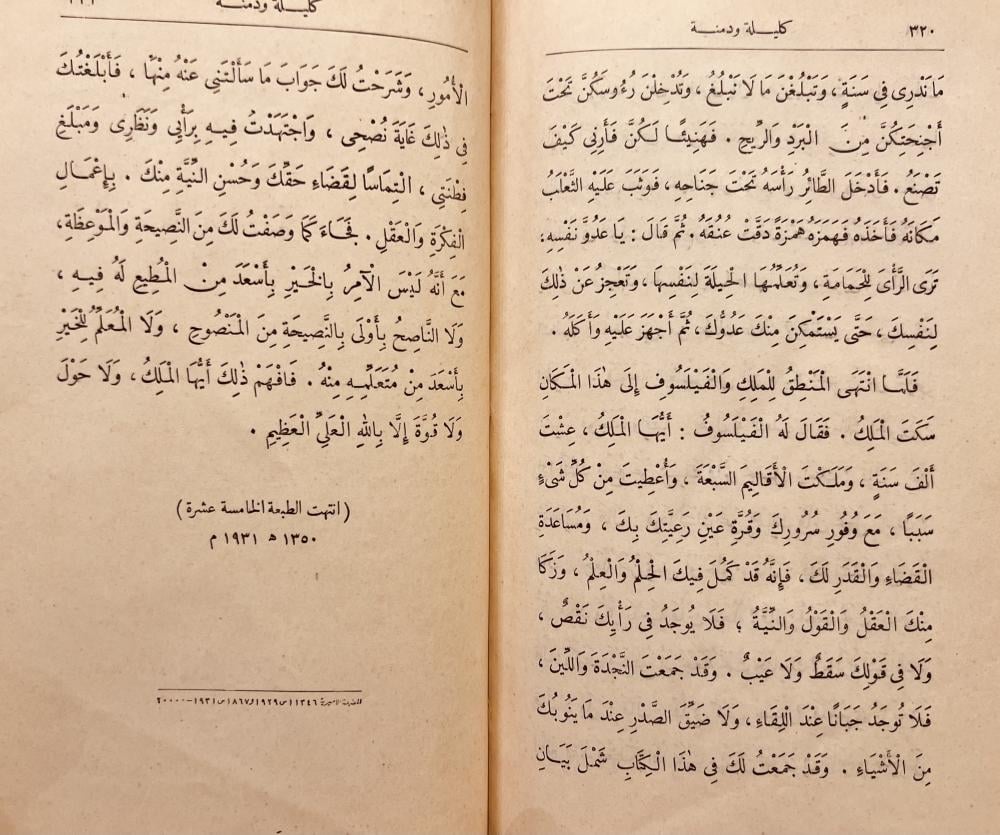 ٣٢٠
كليلة ودمنة
مَا نَدْرِى فِى سَنَةٍ، وَتَبْلُغْنَ مَا لَا نَبْلُغُ، وَتُدْخِلْنَ رُءُوسَكُنَّ تَحْتَ
أَجْنِحَتِكُنَّ مِنَ الْبَرْدِ وَالرِّيحِ. فَهَنِيئًا لَكُنَّ فَأَرِنِى كَيْفَ
تَصْنَعُ. فَأَدْخَلَ الطَّائِرُ رَأْسَهُ تَحْتَ جَنَاحِهِ، فَوَثَبَ عَلَيْهِ الثَّعْلَبُ
مَكَانَهُ فَأَخَذَهُ فَهَمَزَهُ هَمْزَةً دَقَّتْ عُنُقَهُ. ثُمَّ قَالَ: يَا عَدُوَّ نَفْسِهِ،
تَرَى الرَّأْىَ لِلْحَمَامَةِ، وَتُعَلِّمُهَا الْحِيلَةَ لِنَفْسِهَا، وَتَعْجِزُ عَنْ ذٰلِكَ
لِنَفْسِكَ، حَتَّى يَسْتَمْكِنَ مِنْكَ عَدُوُّكَ، ثُمَّ أَجْهَزَ عَلَيْهِ وَأَكَلَهُ.
فَلَمَّا انْتَهَى الْمَنْطِقُ لِلْمَلِكِ وَالْفَيْلَسُوفِ إِلَى هٰذَا الْمَكَانِ
سَكَتَ الْمَلِكُ. فَقَالَ لَهُ الْفَيْلَسُوفُ: أَيُّهَا الْمَلِكُ، عِشْتَ
أَلْفَ سَنَةٍ، وَمَلَكْتَ الْأَقَالِيمَ السَّبْعَةَ، وَأُعْطِيتَ مِنْ كُلِّ شَىْءٍ
سَبَبًا، مَعَ وُفُورِ سُرُورِكَ وَقُرَّةِ عَيْنِ رَعِيَّتِكَ بِكَ، وَمُسَاعَدَةِ
الْقَضَاءِ وَالْقَدَرِ لَكَ، فَإِنَّهُ قَدْ كَمُلَ فِيكَ الْحِلْمُ وَالْعِلْمُ، وَزَكَا
مِنْكَ الْعَقْلُ وَالْقَوْلُ وَالنِّيَّةُ؛ فَلَا يُوجَدُ فِى رَأْيِكَ نَقْصٌ،
وَلَا فِى قَوْلِكَ سَقَطٌ وَلَا عَيْبٌ. وَقَدْ جَمَعْتَ النَّجْدَةَ وَاللِّينَ،
فَلَا تُوجَدُ جَبَانًا عِنْدَ اللِّقَاءِ، وَلَا ضَيِّقَ الصَّدْرِ عِنْدَ مَا يَنُوبُكَ
مِنَ الْأَشْيَاءِ. وَقَدْ جَمَعْتُ لَكَ فِى هٰذَا الْكِتَابِ شَمْلَ بَيَانِ
كليلة ودمنة
الْأُمُورِ، وَشَرَحْتُ لَكَ جَوَابَ مَا سَأَلْتَنِى عَنْهُ مِنْهَا، فَأَبْلَغْتُكَ
فِى ذٰلِكَ غَايَةَ نُصْحِى، وَاجْتَهَدْتُ فِيهِ بِرَأْيِى وَنَظَرِى وَمَبْلَغِ
فِطْنَتِى، الْتِمَاسًا لِقَضَاءِ حَقِّكَ وَحُسْنِ النِّيَّةِ مِنْكَ. بِإِعْمَالِ
الْفِكْرَةِ وَالْعَقْلِ. فَجَاءَ كَمَا وَصَفْتُ لَكَ مِنَ النَّصِيحَةِ وَالْمَوْعِظَةِ،
مَعَ أَنَّهُ لَيْسَ الْآمِرُ بِالْخَيْرِ بِأَسْعَدَ مِنْ الْمُطِيعِ لَهُ فِيهِ،
وَلَا النَّاصِحُ بِأَوْلَى بِالنَّصِيحَةِ مِنَ الْمَنْصُوحِ، وَلَا الْمُعَلِّمُ لِلْخَيْرِ
بِأَسْعَدَ مِنْ مُتَعَلِّمِهِ مِنْهُ. فَافْهَمْ ذٰلِكَ أَيُّهَا الْمَلِكُ، وَلَا حَوْلَ
وَلَا قُوَّةَ إِلَّا بِاللهِ الْعَلِىِّ الْعَظِيمِ.
(انتهت الطبعة الخامسة عشرة)
١٣٥٠ ھ ١٩٣١ م